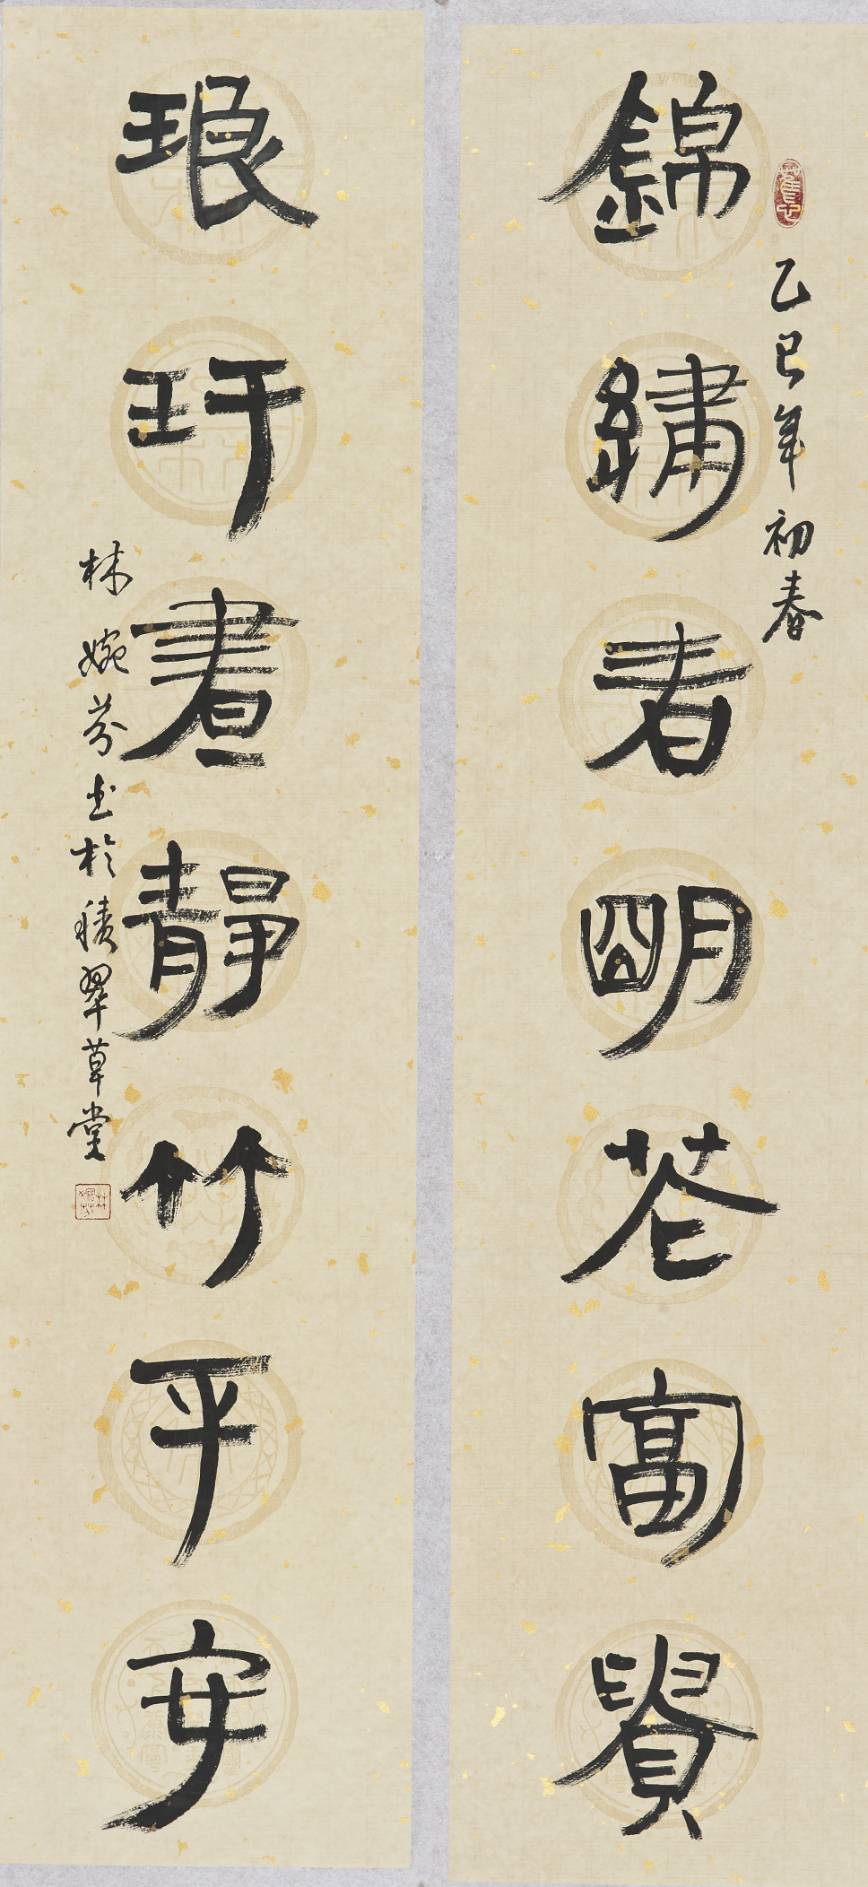 乙巳年初春
錦繡春明花富貴
琅玕晝靜竹平安
林婉芬書於積翠草堂